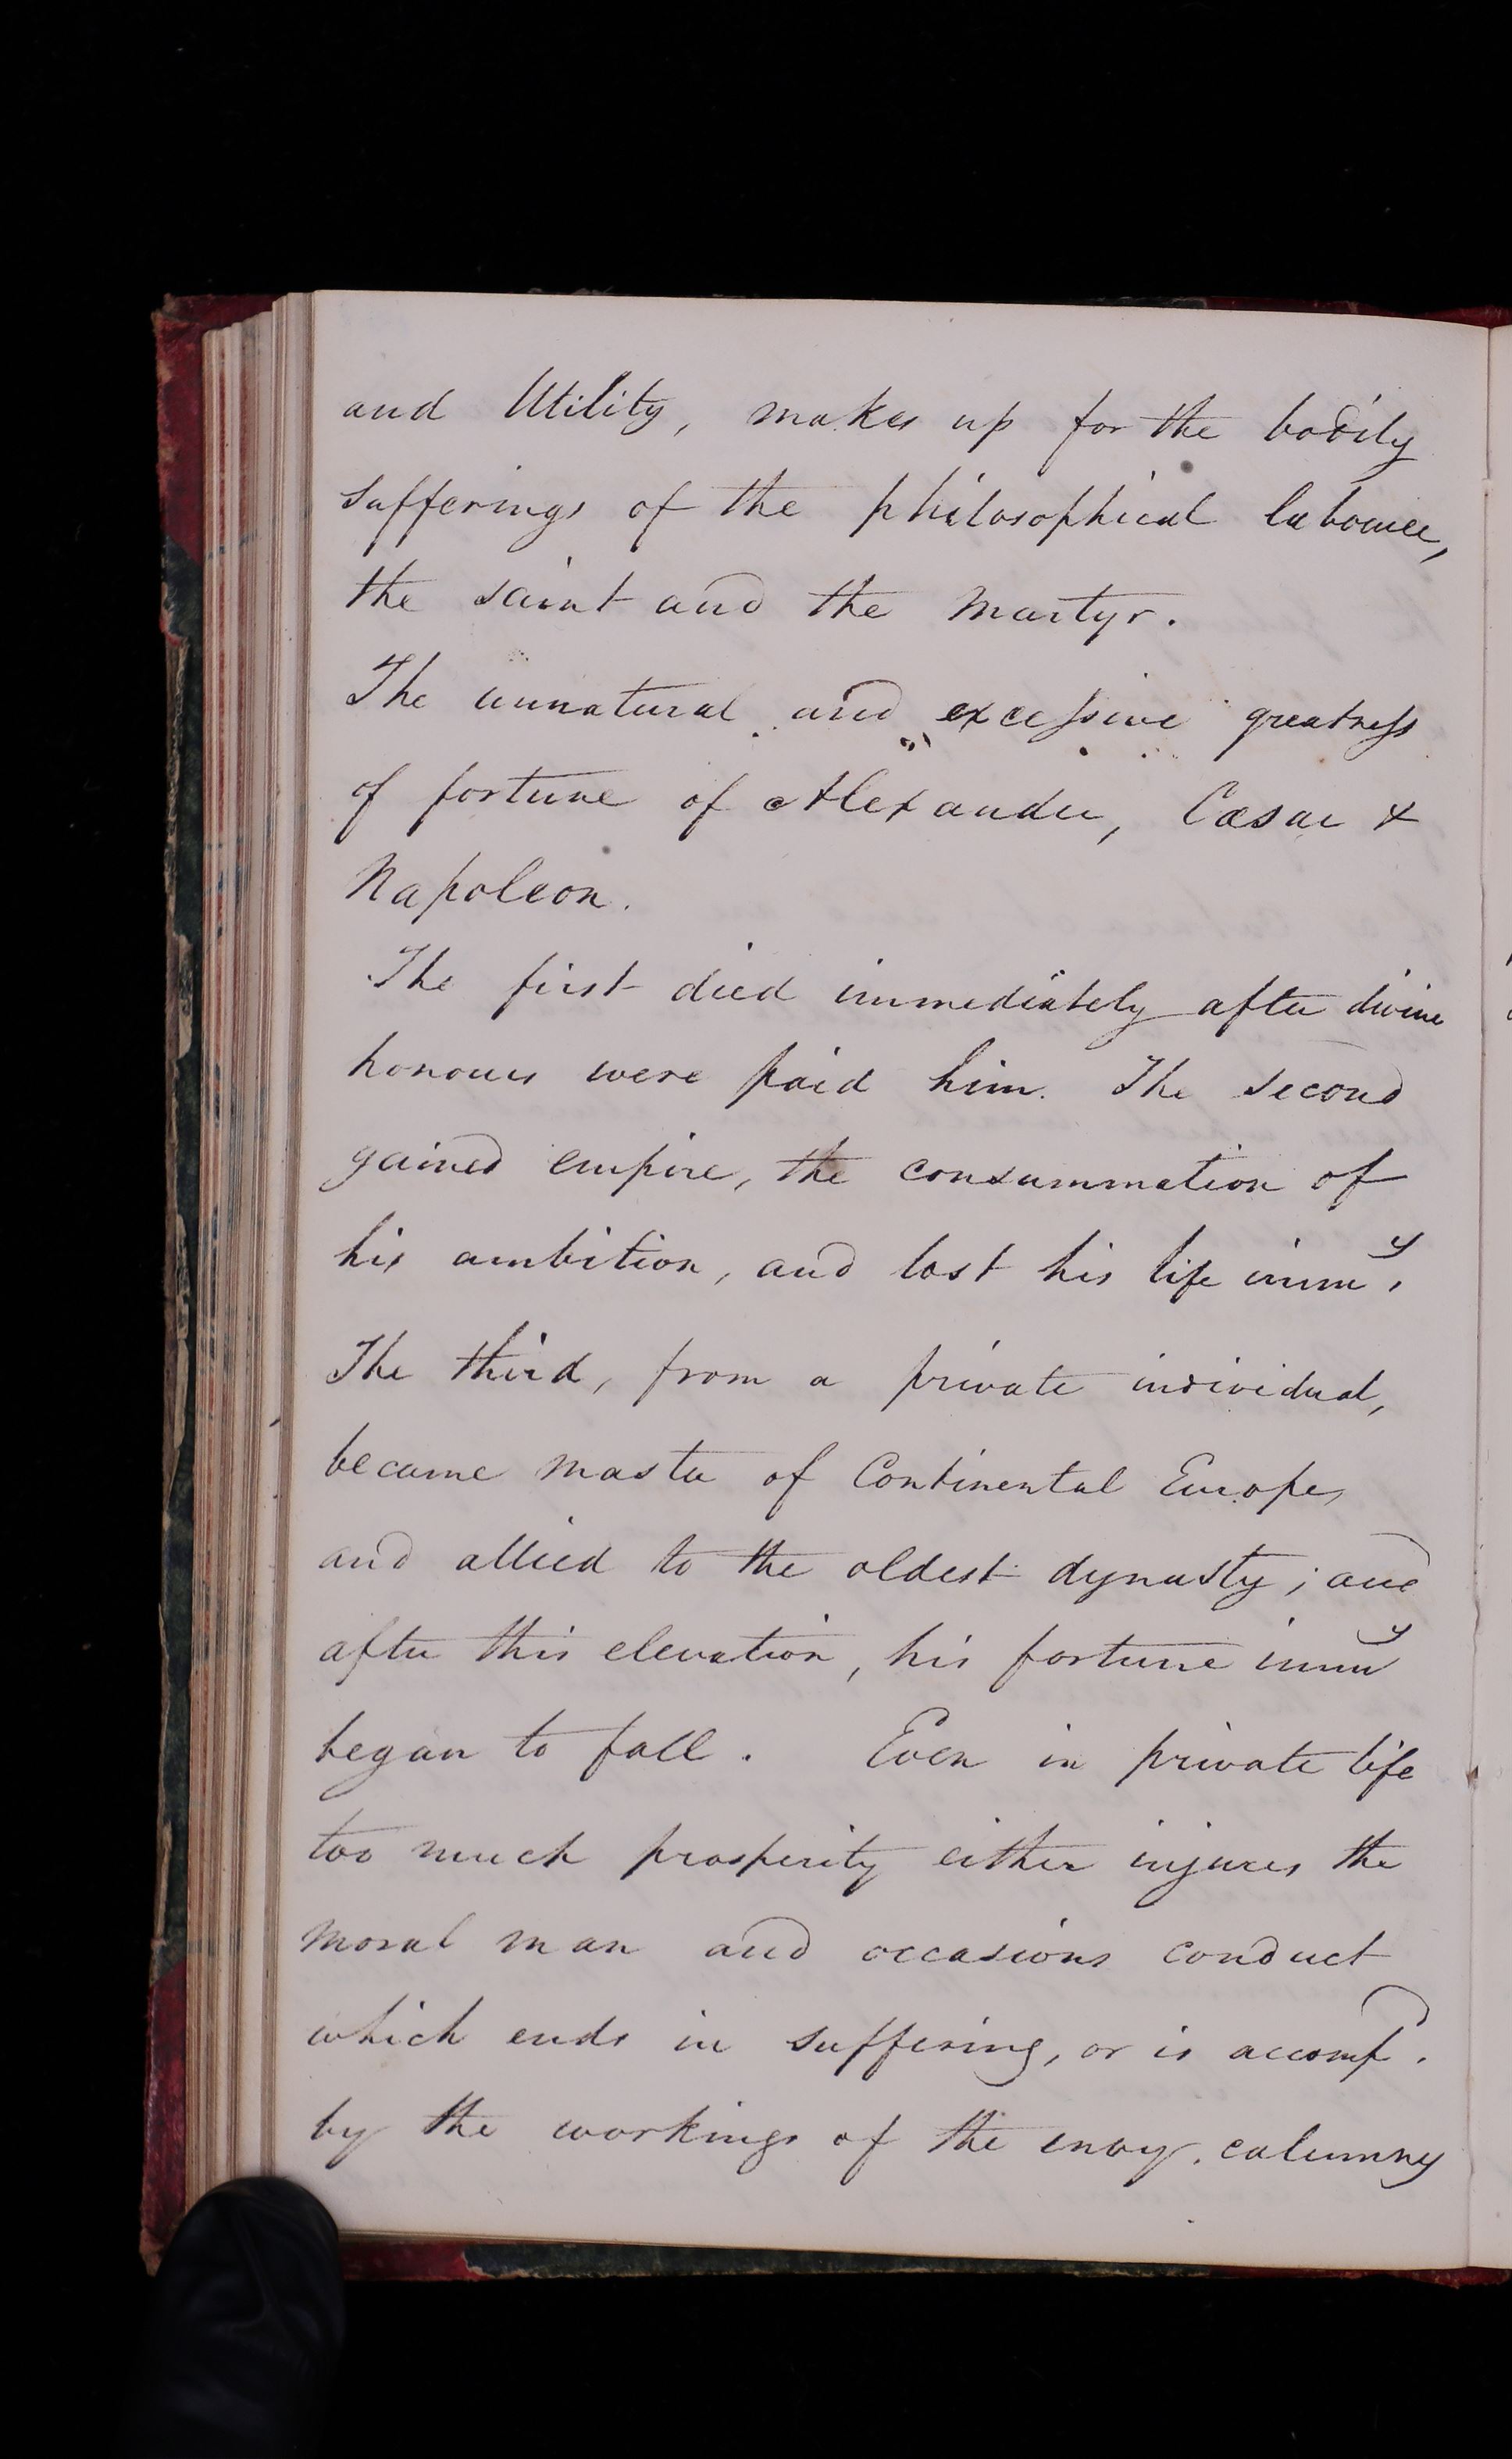 and Utility, makes up for the bodily
sufferings of the philosophical labourer,
the saint and the martyr.
The unnatural and excessive greatness
of fortune of Alexander, Cæsar &
Napoleon.
The first died immediately after divine
honours were paid him. The second
gained empire, the consummation of
his ambition, and lost his life immy.
The third, from a private individual,
became master of Continental Europe,
and allied to the oldest dynasty; and
after this elevation, his fortune immy
began to fall. Even in private life
too much prosperity either injures the
moral man and occasions conduct
which ends in suffering, or is accompd.
by the workings of the envy, calumny